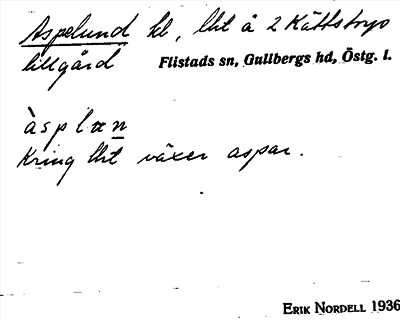 Aspelund hl, lht å 2 Kättstorp
lillgård Flistads sn, Gullbergs hd, Östg. l.
àsplɷn
Kring lht växer aspar.
ERIK NORDELL 1936